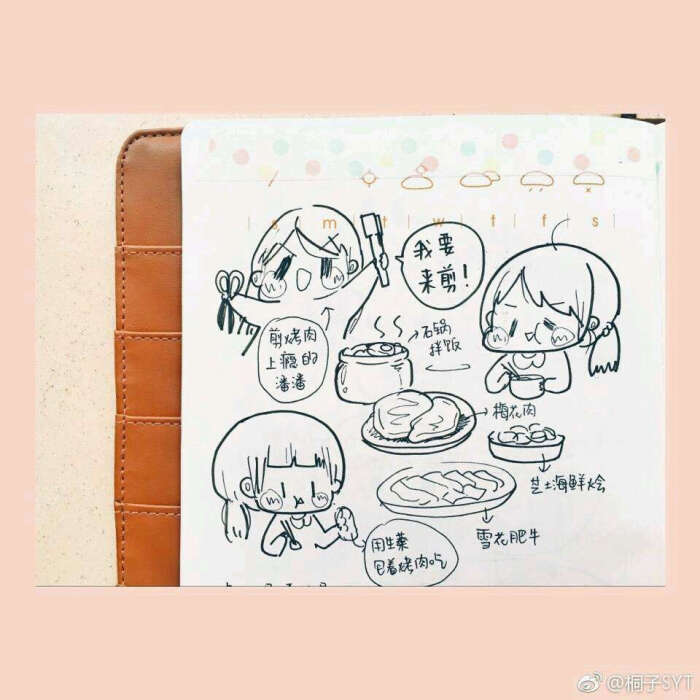 s m t w t f s
我要
来剪！
剪烤肉
上瘾的
潘潘
石锅
拌饭
梅花肉
芝士海鲜烩
雪花肥牛
用生菜
包着烤肉吃
@桐子SYT